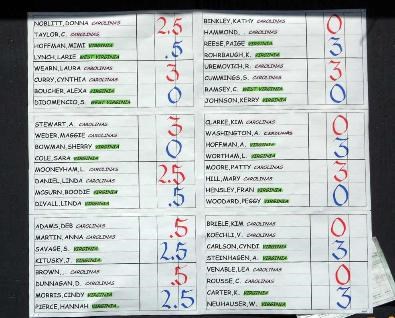 NOBLITT,DONNA CAROLINAS 2.5
TAYLOR,C. CAROLINAS
HOFFMAN,MIMI VIRGINIA .5
LYNCH,LARIE WEST VIRGINIA
WEARN,LAURA CAROLINAS 3
CURRY,CYNTHIA CAROLINAS
BOUCHER,ALEXA VIRGINIA 0
DIDOMENCIO,S. WEST VIRGINIA
BINKLEY,KATHY CAROLINAS 0
HAMMOND, CAROLINAS
REESE,PAIGE VIRGINIA 3
ROHRBAUGH,K. VIRGINIA
UREMOVICH,R. CAROLINAS 3
CUMMINGS,S. CAROLINAS
RAMSEY,C. WEST VIRGINIA 0
JOHNSON,KERRY VIRGINIA
STEWART,A. CAROLINAS 3
WEDER,MAGGIE CAROLINAS
BOWMAN,SHERRY VIRGINIA 0
COLE,SARA VIRGINIA
MOONEYHAM,L. CAROLINAS 2.5
DANIEL,LINDA CAROLINAS
MCGURN,BOODIE VIRGINIA .5
DIVALL,LINDA VIRGINIA
CLARKE,KIM CAROLINAS 0
WASHINGTON,A. CAROLINAS
HOFFMAN,A. VIRGINIA 3
WORTHAM,L. VIRGINIA
MOORE,PATTY CAROLINAS 3
HILL,MARY CAROLINAS
HENSLEY,FRAN VIRGINIA 0
WOODARD,PEGGY VIRGINIA
ADAMS,DEB CAROLINAS .5
MARTIN,ANNA CAROLINAS
SAVAGE,S. VIRGINIA 2.5
KITUSKY,J. VIRGINIA
BROWN, CAROLINAS .5
DUNNAGAN,D. CAROLINAS
MORRIS,CINDY VIRGINIA 2.5
PIERCE,HANNAH VIRGINIA
BRIELE,KIM CAROLINAS 0
KOECHLI,V. CAROLINAS
CARLSON,CYNDI VIRGINIA 3
STEINHAGEN,A. VIRGINIA
VENABLE,LEA CAROLINAS 0
ROUSSE,C. CAROLINAS
CARTER,K. VIRGINIA 3
NEUHAUSER,W. VIRGINIA